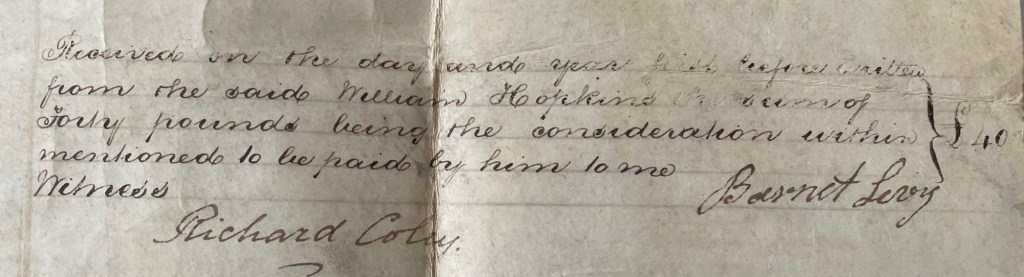 Received on the day and year first before written
from the said William Hopkins the sum of
Forty pounds being the consideration within £40
mentioned to be paid by him to me
Witness Barnet Levy
Richard